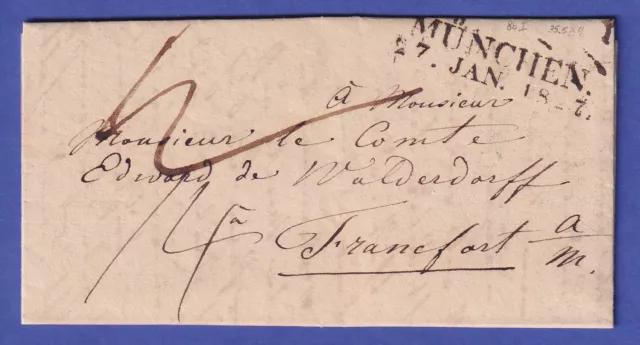 MÜNCHEN.
27. JAN. 1827.
à Monsieur
Monsieur le Comte
Edward de Walderdorff
à Francfort a/m.